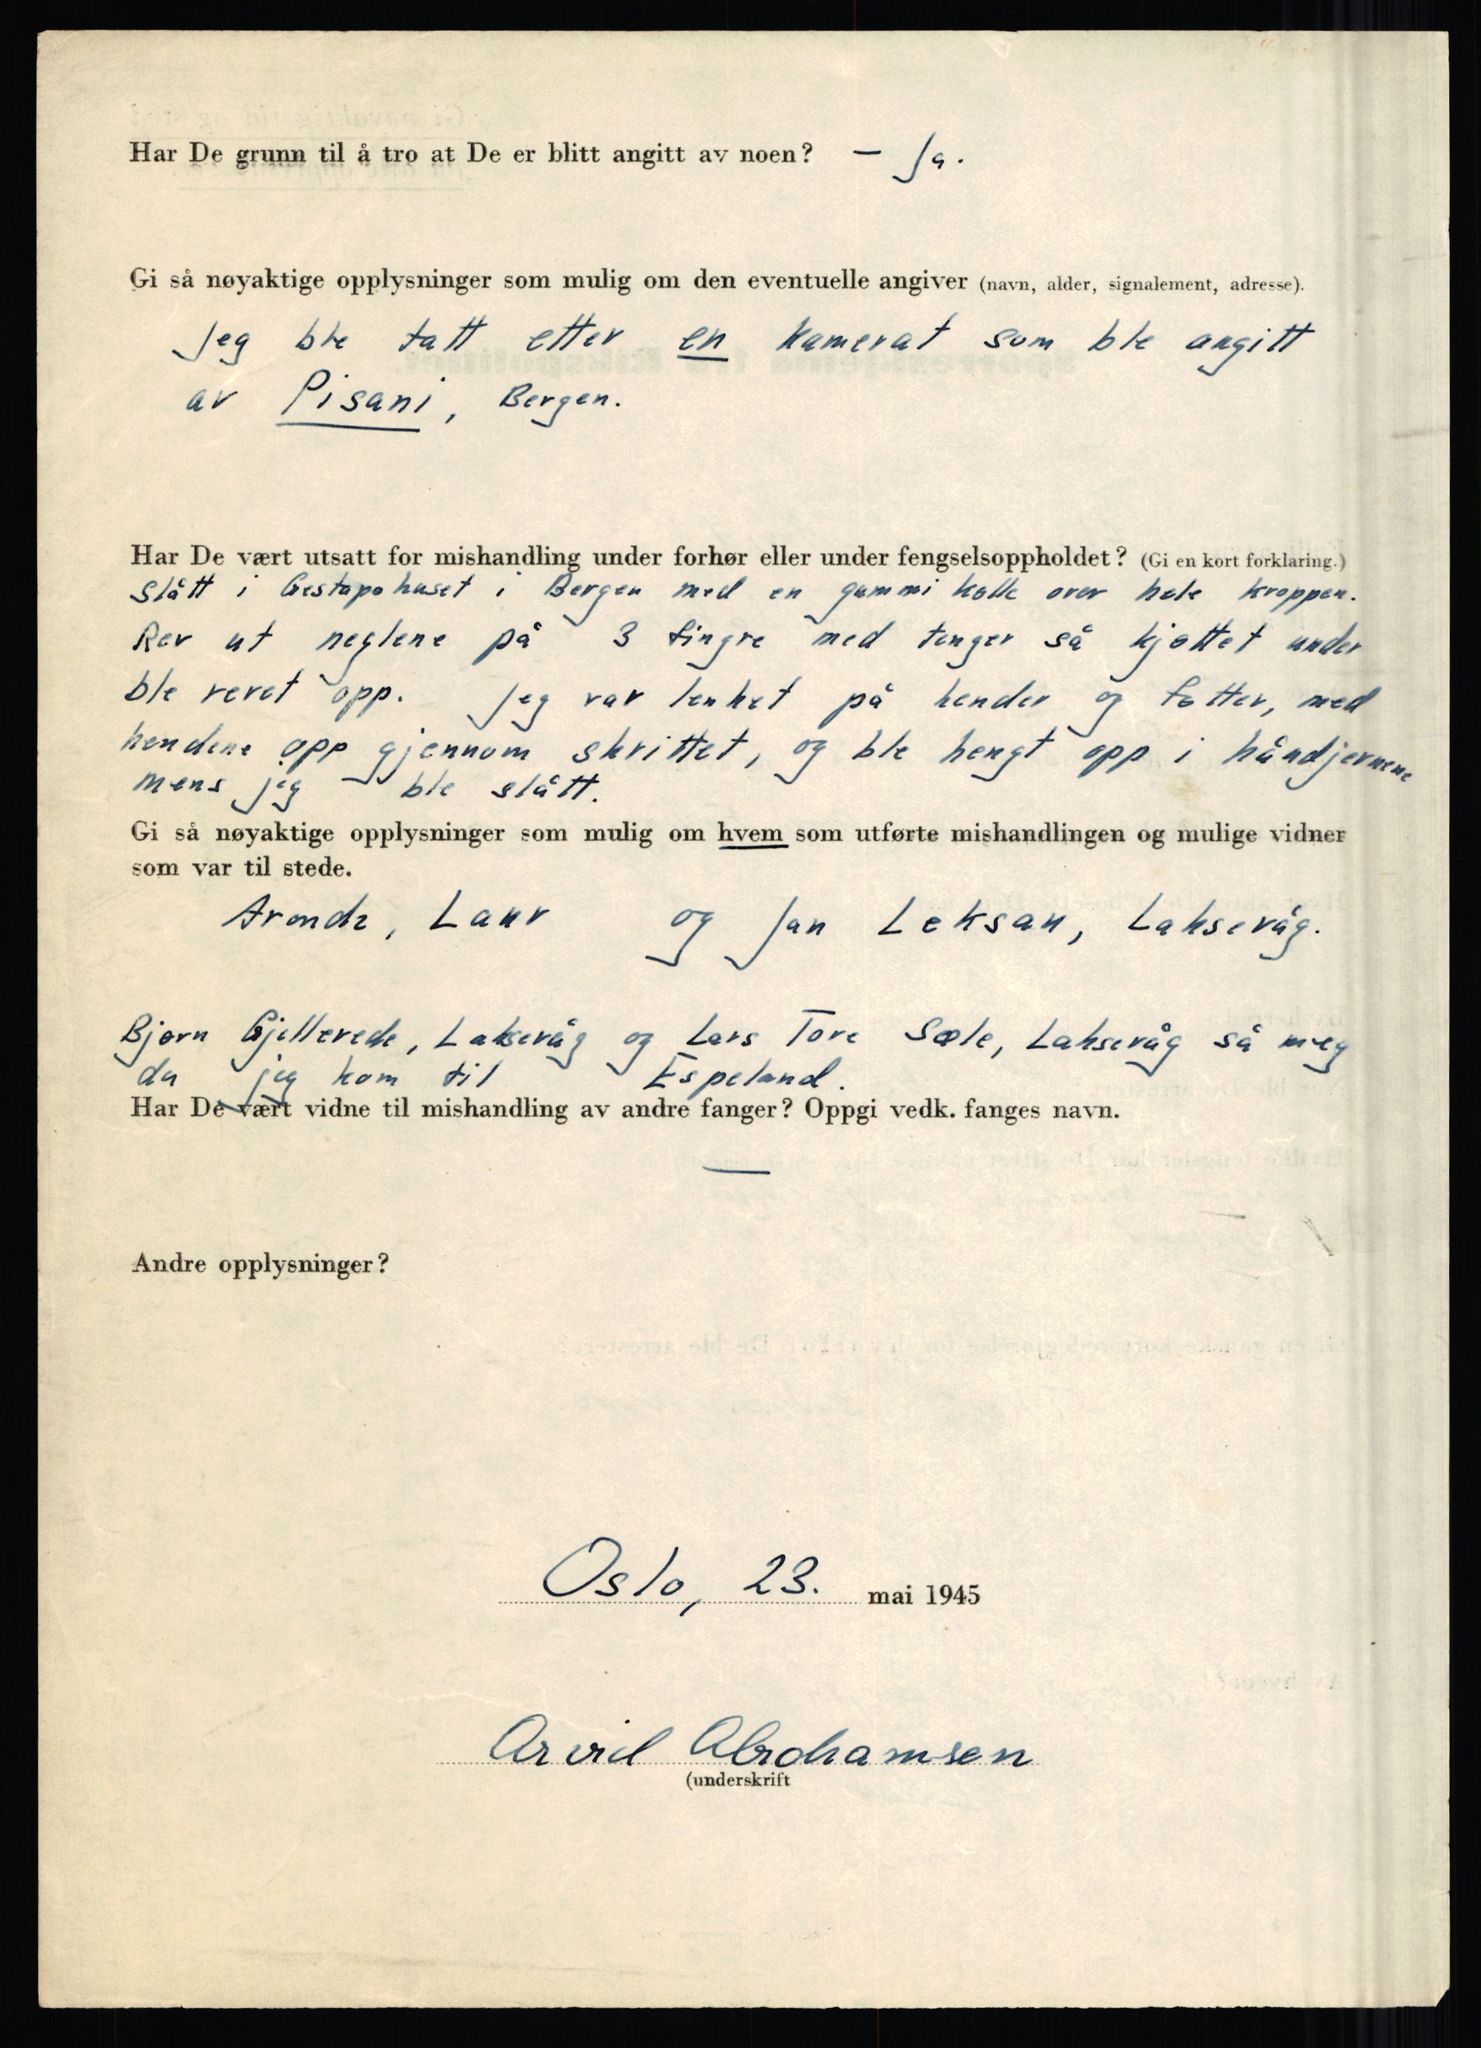 Har De grunn til å tro at De er blitt angitt av noen? — Ja.
Gi så nøyaktige opplysninger som mulig om den eventuelle angiver (navn, alder, signalement, adresse).
Jeg ble tatt etter en kamerat som ble angitt
av Pisani, Bergen.
Har De vært utsatt for mishandling under forhør eller under fengselsoppholdet? (Gi en kort forklaring.)
Slått i Gestapohuset i Bergen med en gummikølle over hele kroppen.
Rev ut neglene på 3 fingre med tenger så kjøttet under
ble revet opp. Jeg var lenket på hender og føtter, med
hendene opp gjennom skrittet, og ble hengt opp i håndjernene
mens jeg ble slått.
Gi så nøyaktige opplysninger som mulig om hvem som utførte mishandlingen og mulige vidner
som var til stede.
Laur og Jan Leksan, Laksevåg.
Bjørn Gjellerede, Laksevåg og Lars Tore Sæle, Laksevåg så meg
da jeg kom til Espeland.
Har De vært vidne til mishandling av andre fanger? Oppgi vedk. fanges navn.
—
Andre opplysninger?
Oslo, 23. mai 1945
Arvid Abrahamsen
(underskrift